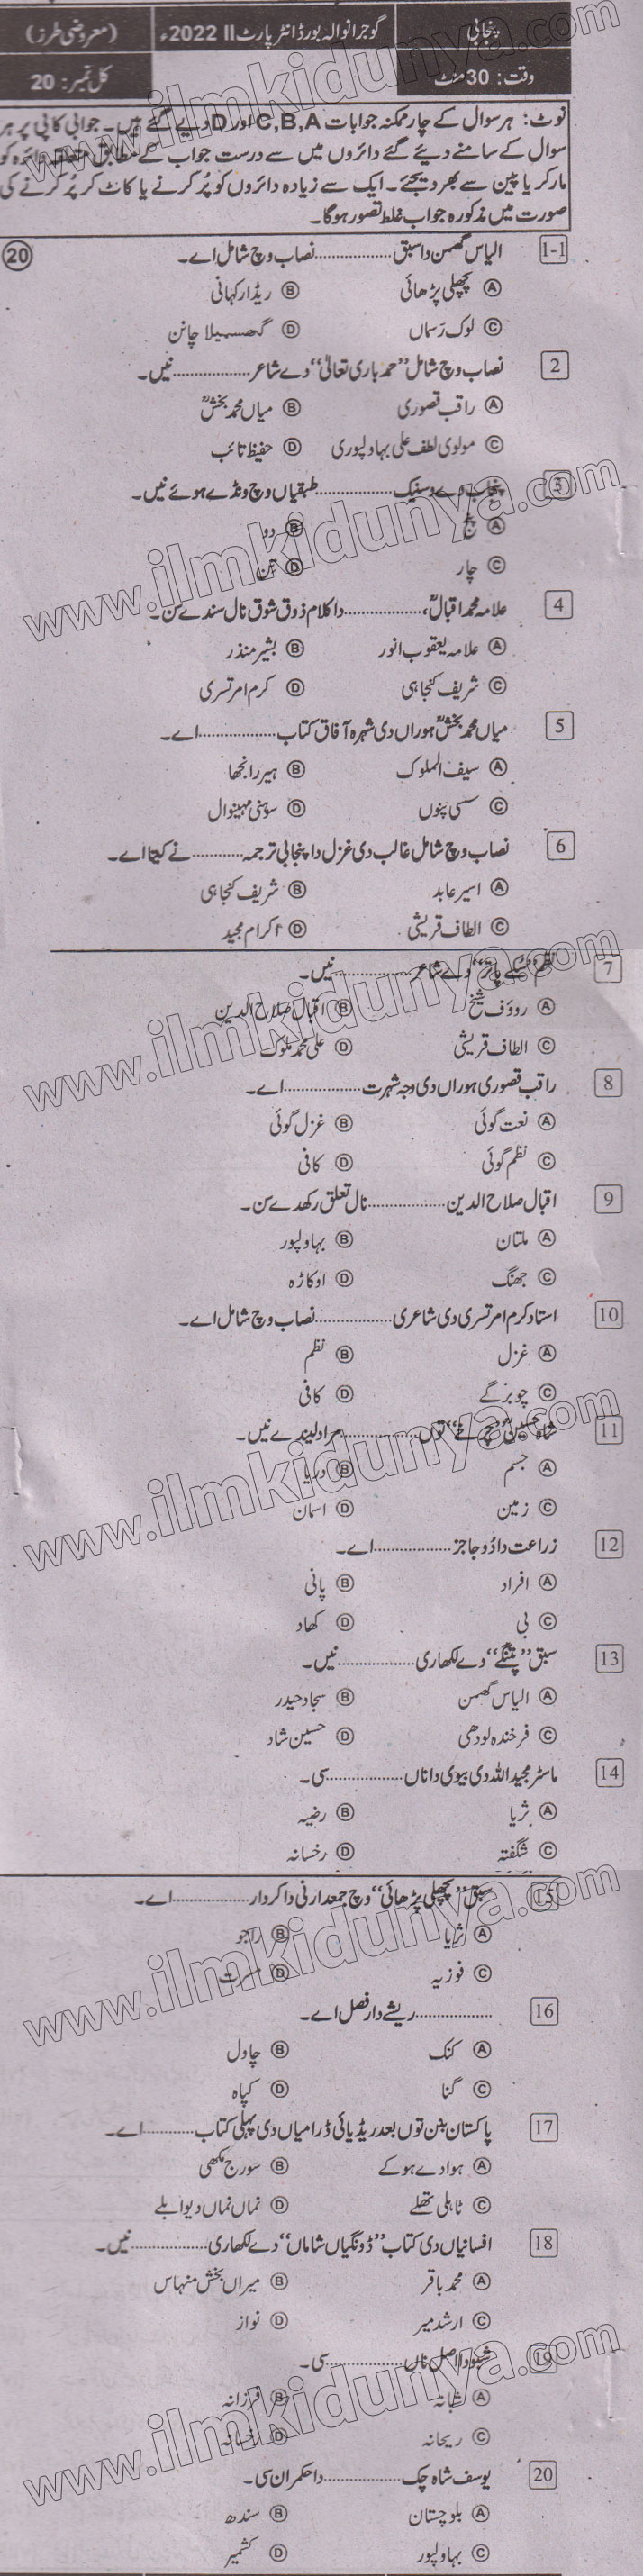 پنجابی
گوجرانوالہ بورڈ انٹر پارٹ II 2022ء
(معروضی طرز)
وقت: 30 منٹ
کل نمبر: 20
نوٹ: ہر سوال کے چار ممکنہ جوابات A,B,C اور D دیے گئے ہیں۔ جوابی کاپی پر ہر
سوال کے سامنے دیئے گئے دائروں میں سے درست جواب کے مطابق متعلقہ دائرہ کو
مارکر یا پین سے بھر دیجئے۔ ایک سے زیادہ دائروں کو پُر کرنے یا کاٹ کر پُر کرنے کی
صورت میں مذکورہ جواب غلط تصور ہوگا۔
1-1 الیاس گھمن دا سبق ................ نصاب وچ شامل اے۔ (20)
A پچھلی پڑھائی B ریڈار کہانی
C لوک رسماں D گھسمیلا چانن
2 نصاب وچ شامل ”حمد باری تعالیٰ“ دے شاعر ................ نیں۔
A راقب قصوری B میاں محمد بخشؒ
C مولوی لطف علی بہاولپوری D حفیظ تائب
3 پنجاب دے وسنیک ................ طبقیاں وچ ونڈے ہوئے نیں۔
A پنج B دو
C چار D تن
4 علامہ محمد اقبالؒ، ................ دا کلام ذوق شوق نال سندے سن۔
A علامہ یعقوب انور B بشیر منذر
C شریف کنجاہی D کرم امرتسری
5 میاں محمد بخشؒ ہوراں دی شہرہ آفاق کتاب ................ اے۔
A سیف الملوک B ہیر رانجھا
C سسی پنوں D سوہنی مہینوال
6 نصاب وچ شامل غالب دی غزل دا پنجابی ترجمہ ............ نے کیتا اے۔
A اسیر عابد B شریف کنجاہی
C الطاف قریشی D اکرام مجید
7 نظم دے شاعر ................ نیں۔
A روؤف شیخ B اقبال صلاح الدین
C الطاف قریشی D علی محمد ملوک
8 راقب قصوری ہوراں دی وجہ شہرت ................ اے۔
A نعت گوئی B غزل گوئی
C نظم گوئی D کافی
9 اقبال صلاح الدین ................ نال تعلق رکھدے سن۔
A ملتان B بہاولپور
C جھنگ D اوکاڑہ
10 استاد کرم امرتسری دی شاعری ................ نصاب وچ شامل اے۔
A غزل B نظم
C چوبرگے D کافی
11 شاہ حسینؒ ”چرخے“ توں ................ مراد لیندے نیں۔
A جسم B دریا
C زمین D اسمان
12 زراعت دا دُوجا جز ................ اے۔
A افراد B پانی
C بی D کھاد
13 سبق ”پتنگے“ دے لکھاری ................ نیں۔
A الیاس گھمن B سجاد حیدر
C فرخندہ لودھی D حسین شاد
14 ماسٹر مجید اللہ دی بیوی دا ناں ................ سی۔
A ثریا B رضیہ
C شگفتہ D رخسانہ
15 سبق ”پچھلی پڑھائی“ وچ جمعدارنی دا کردار ................ اے۔
A ثریا B راجو
C فوزیہ D مسرت
16 ................ ریشے دار فصل اے۔
A کنک B چاول
C گنا D کپاہ
17 پاکستان بنن توں بعد ریڈیائی ڈرامیاں دی پہلی کتاب ............ اے۔
A ہوا دے ہوکے B سورج مکھی
C ٹاہلی تھلے D نماں نماں دیوا بلے
18 افسانیاں دی کتاب ”ڈونگیاں شاماں“ دے لکھاری ................ نیں۔
A محمد باقر B میراں بخش منہاس
C ارشد میر D نواز
19 شبو دا اصل ناں ................ سی۔
A شبانہ B فرزانہ
C ریحانہ D رخسانہ
20 یوسف شاہ چک ................ دا حکمران سی۔
A بلوچستان B سندھ
C بہاولپور D کشمیر
www.ilmkidunya.com
www.ilmkidunya.com
www.ilmkidunya.com
www.ilmkidunya.com
www.ilmkidunya.com
www.ilmkidunya.com